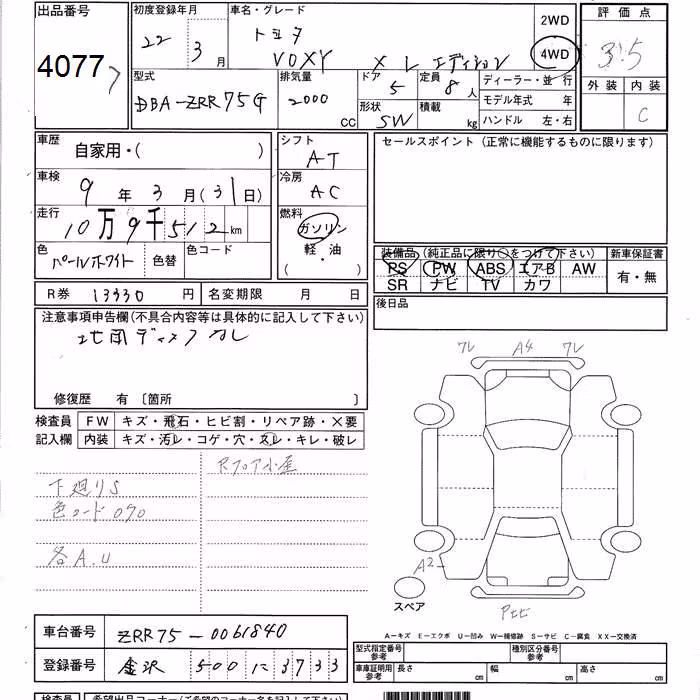 出品番号
4077
初度登録年月
22年3月
車名・グレード
トヨタ
VOXY X L エディション
2WD
4WD
評価点
3.5
外装 内装
C
型式
DBA-ZRR75G
排気量
2000
CC
ドア
5
定員
8人
形状
SW
積載
kg
ディーラー・並行
モデル年式 年
ハンドル 左・右
車歴
自家用・( )
シフト
AT
セールスポイント (正常に機能するものに限ります)
車検
9年3月(31日)
冷房
AC
走行
10万9千512km
燃料
ガソリン
軽・油
( )
色
パールホワイト
色替
色コード
装備品(純正品に限り○をつけて下さい)
新車保証書
PS PW ABS エアB AW
SR ナビ TV カワ
有・無
R券 13330円
名変期限 月 日
後日品
注意事項申告欄(不具合内容等は具体的に記入して下さい)
地図ディスクカレ
修復歴 有 〔箇所 〕
検査員
記入欄
FW キズ・飛石・ヒビ割・リペア跡・×要
内装 キズ・汚レ・コゲ・穴・スレ・キレ・破レ
Rフロア小歪
下廻りS
色コード070
各A.U
ワレ A4 ワレ
A2
スペア
A―キズ E―エクボ U―凹み W―補修跡 S―サビ C―腐食 XX―交換済
車台番号 ZRR75-0061840
登録番号 金沢 500 に 3733
型式指定番号
参考
種別区分番号
参考
車庫証明用
参考
長さ cm
幅 cm
高さ cm
検査員
希望出品コーナー(ご希望のコーナー名をご記入下さい)